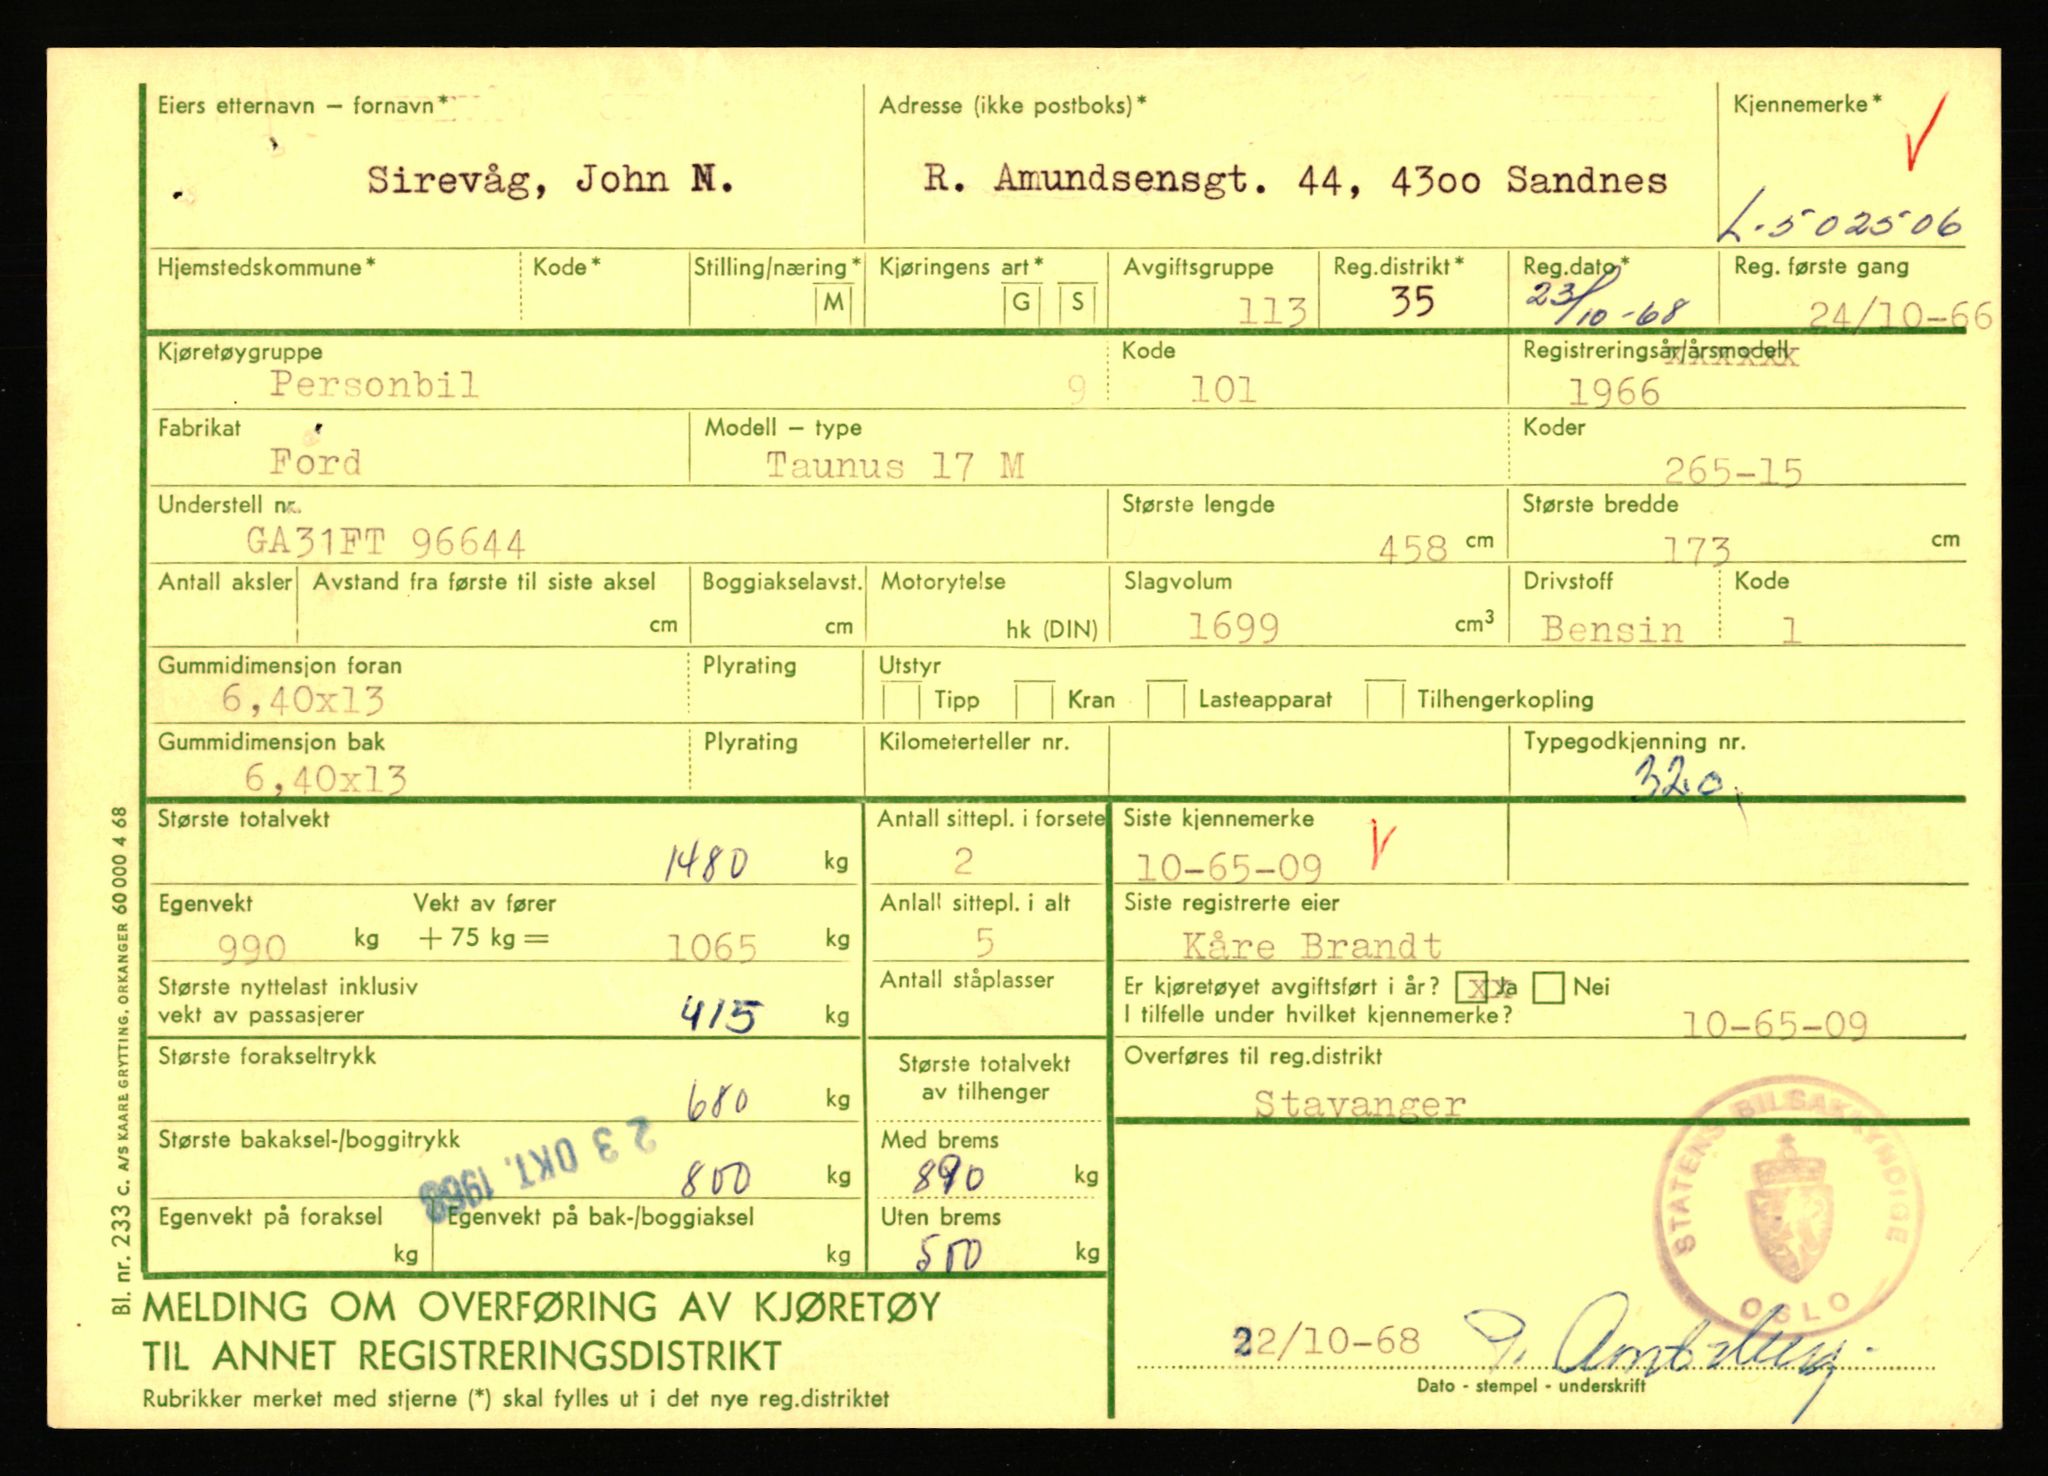 Eiers etternavn – fornavn*
Sirevåg, John N.
Adresse (ikke postboks)*
R. Amundsensgt. 44, 4300 Sandnes
Kjennemerke*
L-502506
Hjemstedskommune* Kode* Stilling/næring* M
Kjøringens art* G S
Avgiftsgruppe
113
Reg.distrikt*
35
Reg.dato*
23/10-68
Reg. første gang
24/10-66
Kjøretøygruppe
Personbil 9
Kode
101
Registreringsår/årsmodell
1966
Fabrikat
Ford
Modell – type
Taunus 17 M
Koder
265-15
Understell nr.
GA31FT 96644
Største lengde
458 cm
Største bredde
173 cm
Antall aksler
Avstand fra første til siste aksel
cm
Boggiakselavst.
cm
Motorytelse
hk (DIN)
Slagvolum
1699 cm3
Drivstoff
Bensin
Kode
1
Gummidimensjon foran
6,40x13
Plyrating
Utstyr
Tipp Kran Lasteapparat Tilhengerkopling
Gummidimensjon bak
6,40x13
Plyrating
Kilometerteller nr.
Typegodkjenning nr.
320
Største totalvekt
1480 kg
Antall sittepl. i forsete
2
Siste kjennemerke
10-65-09
Egenvekt
990 kg
Vekt av fører
+ 75 kg = 1065 kg
Anlall sittepl. i alt
5
Siste registrerte eier
Kåre Brandt
Største nyttelast inklusiv
vekt av passasjerer
415 kg
Antall ståplasser
Er kjøretøyet avgiftsført i år? xx Ja Nei
I tilfelle under hvilket kjennemerke?
10-65-09
Største forakseltrykk
680 kg
Største totalvekt
av tilhenger
Overføres til reg.distrikt
Stavanger
Største bakaksel-/boggitrykk
800 kg
23 OKT. 1968
Med brems
890 kg
Egenvekt på foraksel
kg
Egenvekt på bak-/boggiaksel
kg
Uten brems
500 kg
STATENS BILSAKKYNDIGE
OSLO
MELDING OM OVERFØRING AV KJØRETØY
TIL ANNET REGISTRERINGSDISTRIKT
Rubrikker merket med stjerne (*) skal fylles ut i det nye reg.distriktet
22/10-68
Dato - stempel - underskrift
Bl. nr. 233 C. A/S KAARE GRYTTING, ORKANGER 60 000 4 68